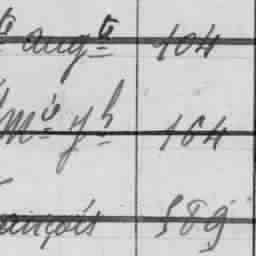 te augte 104
Mie Jh 164
ançois 589